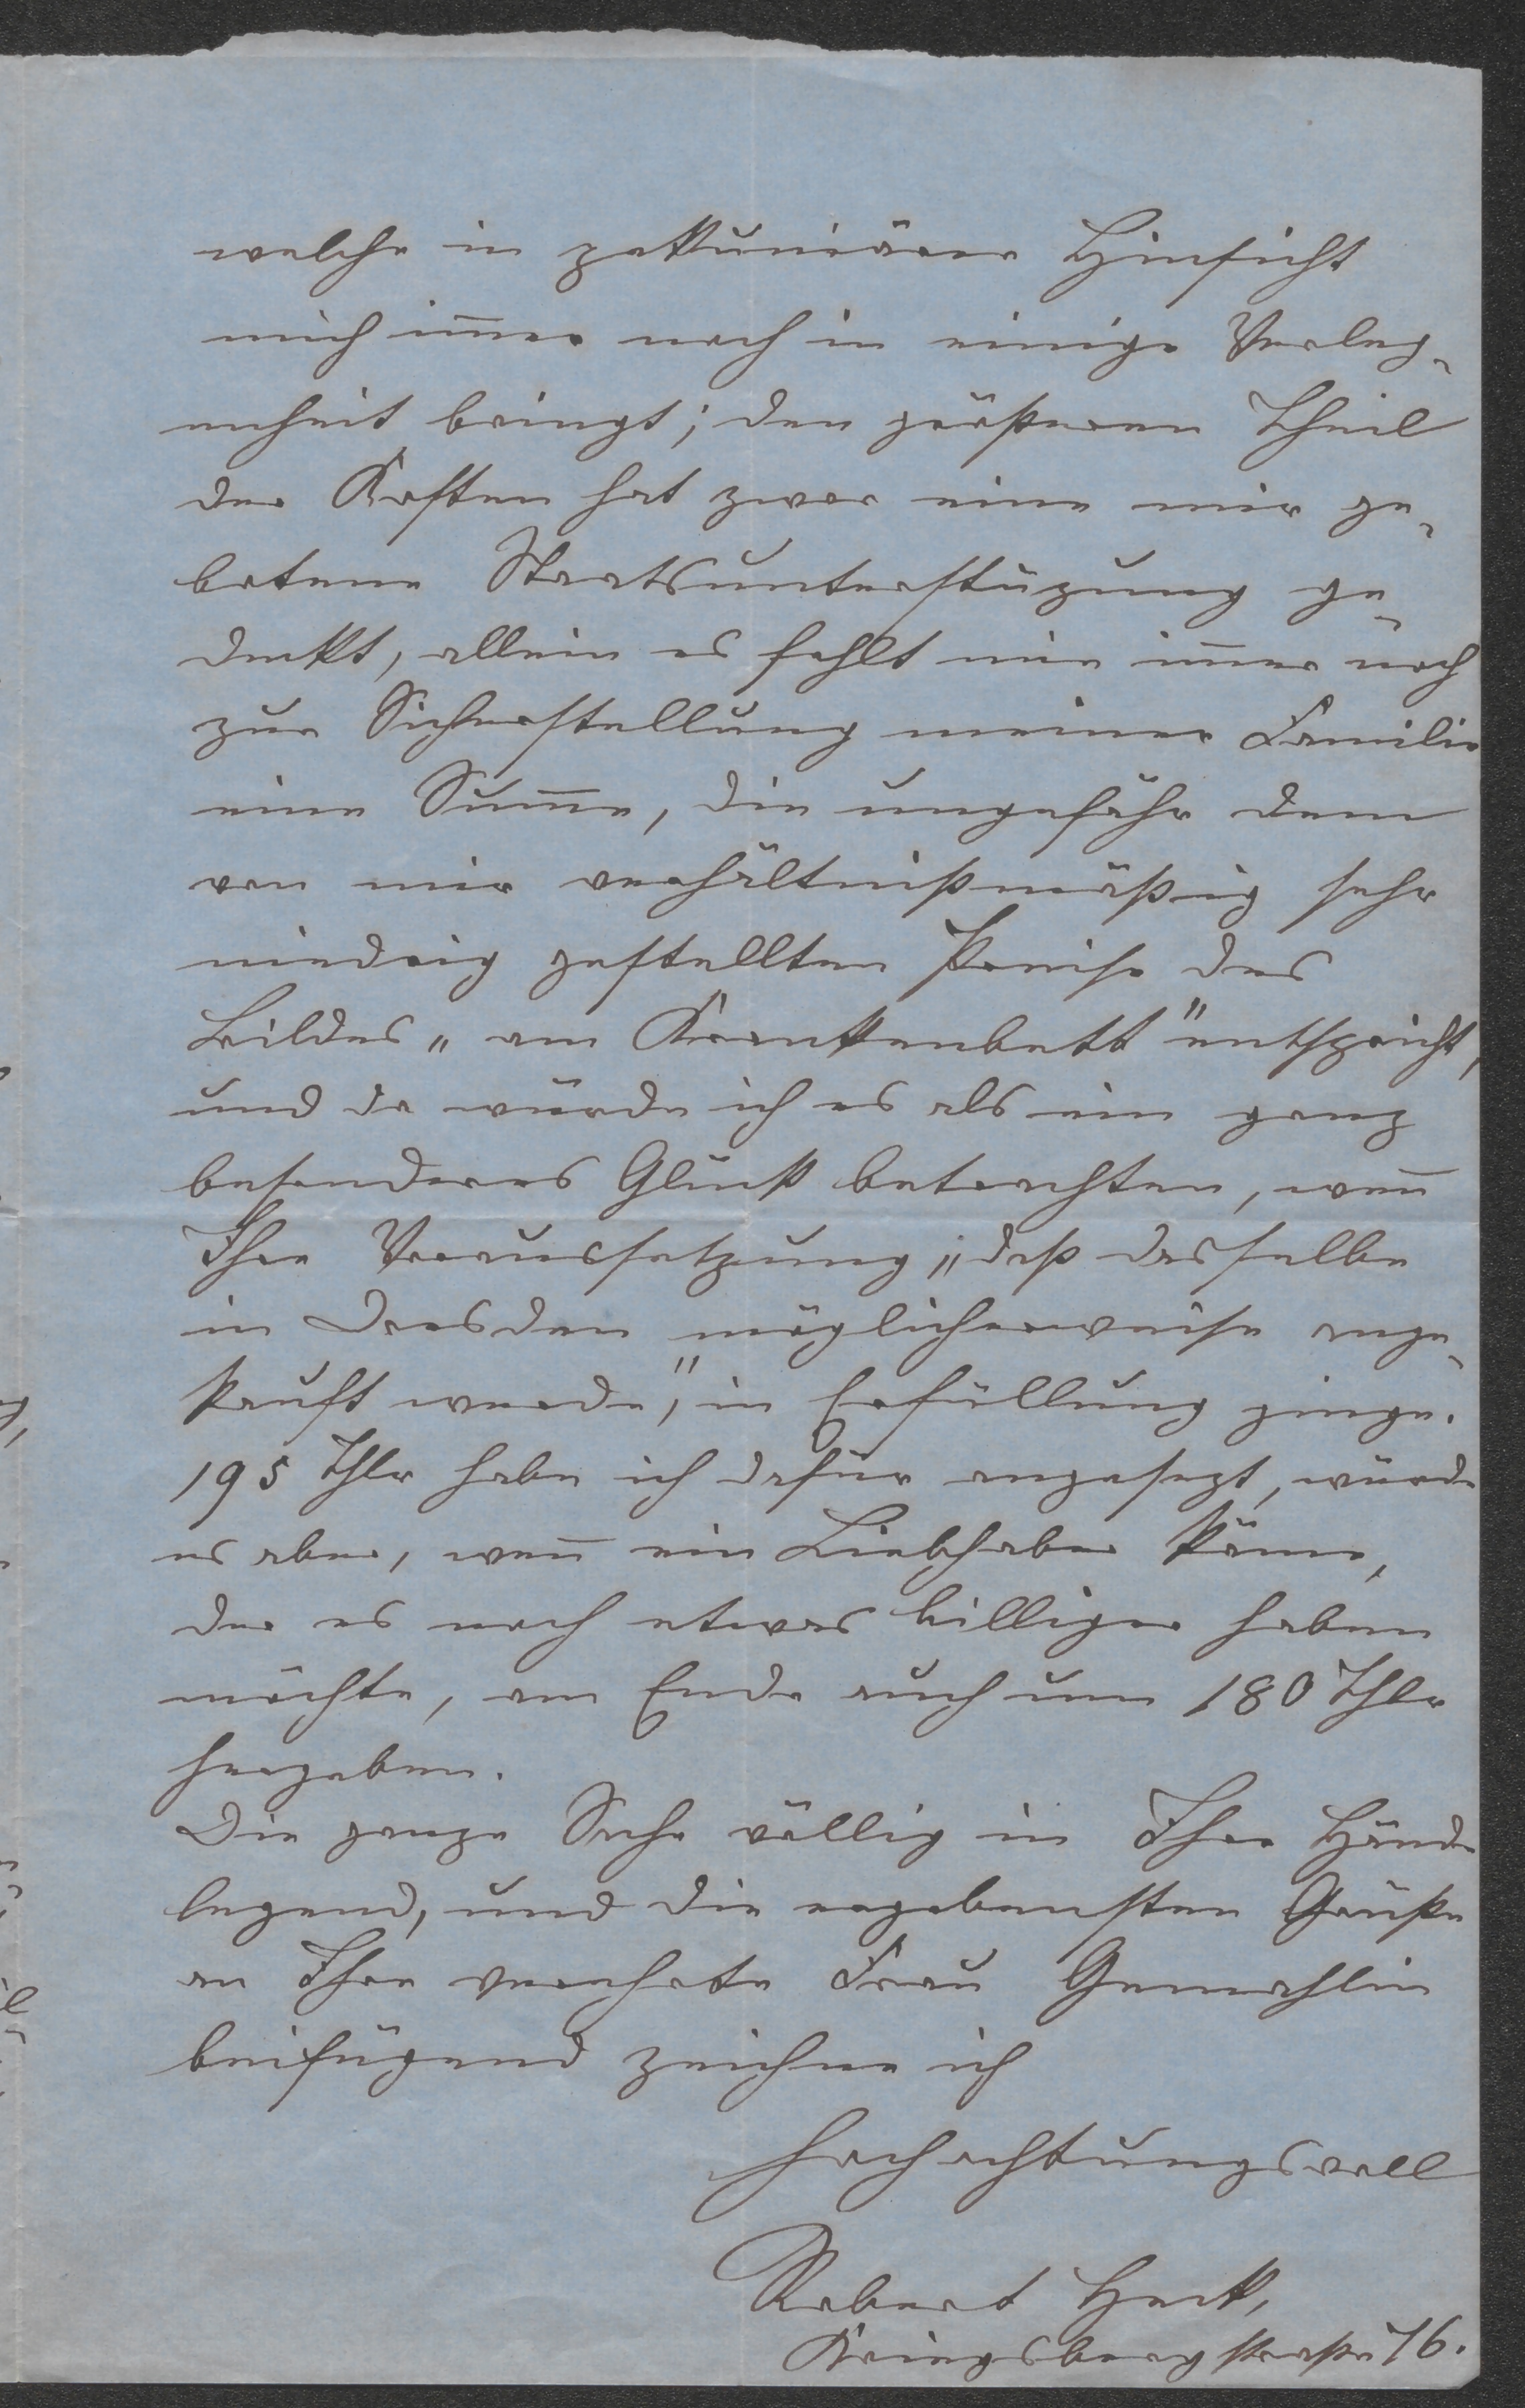 welche in pekuniärer Hinsicht
mich im̄er noch in einige Verleg¬
enheit bringt; den größeren Theil
der Kosten hat zwar eine mir ge¬
botene Staatsunterstüzung ge¬
deckt, allein es fehlt mir im̄er noch
zur Sicherstellung meiner Familie
eine Sum̄e, die ungefähr dem
von mir verhältnißmäßig sehr
niedrig gestellten Preise des
Bildes „am Krankenbett" entspricht,
und da würde ich es als ein ganz
besonderes Glück betrachten, wen̄
Ihre Voraussetzung, „daß dasselbe
in Dresden möglicherweise ange¬
kauft werde," in Erfüllung ginge.
195 Thlr habe ich dafür angesezt, würde
es aber, wen̄ ein Liebhaber käme,
der es noch etwas billiger haben
möchte, am Ende auch um 180 Thlr
hergeben.
Die ganze Sache völlig in Ihre Hände
legend, und die ergebensten Grüße
an Ihre verehrte Frau Gemahlin
beifügend zeichne ich
hochachtungsvoll
Robert Heck,
Kriegsbergstraße 16.